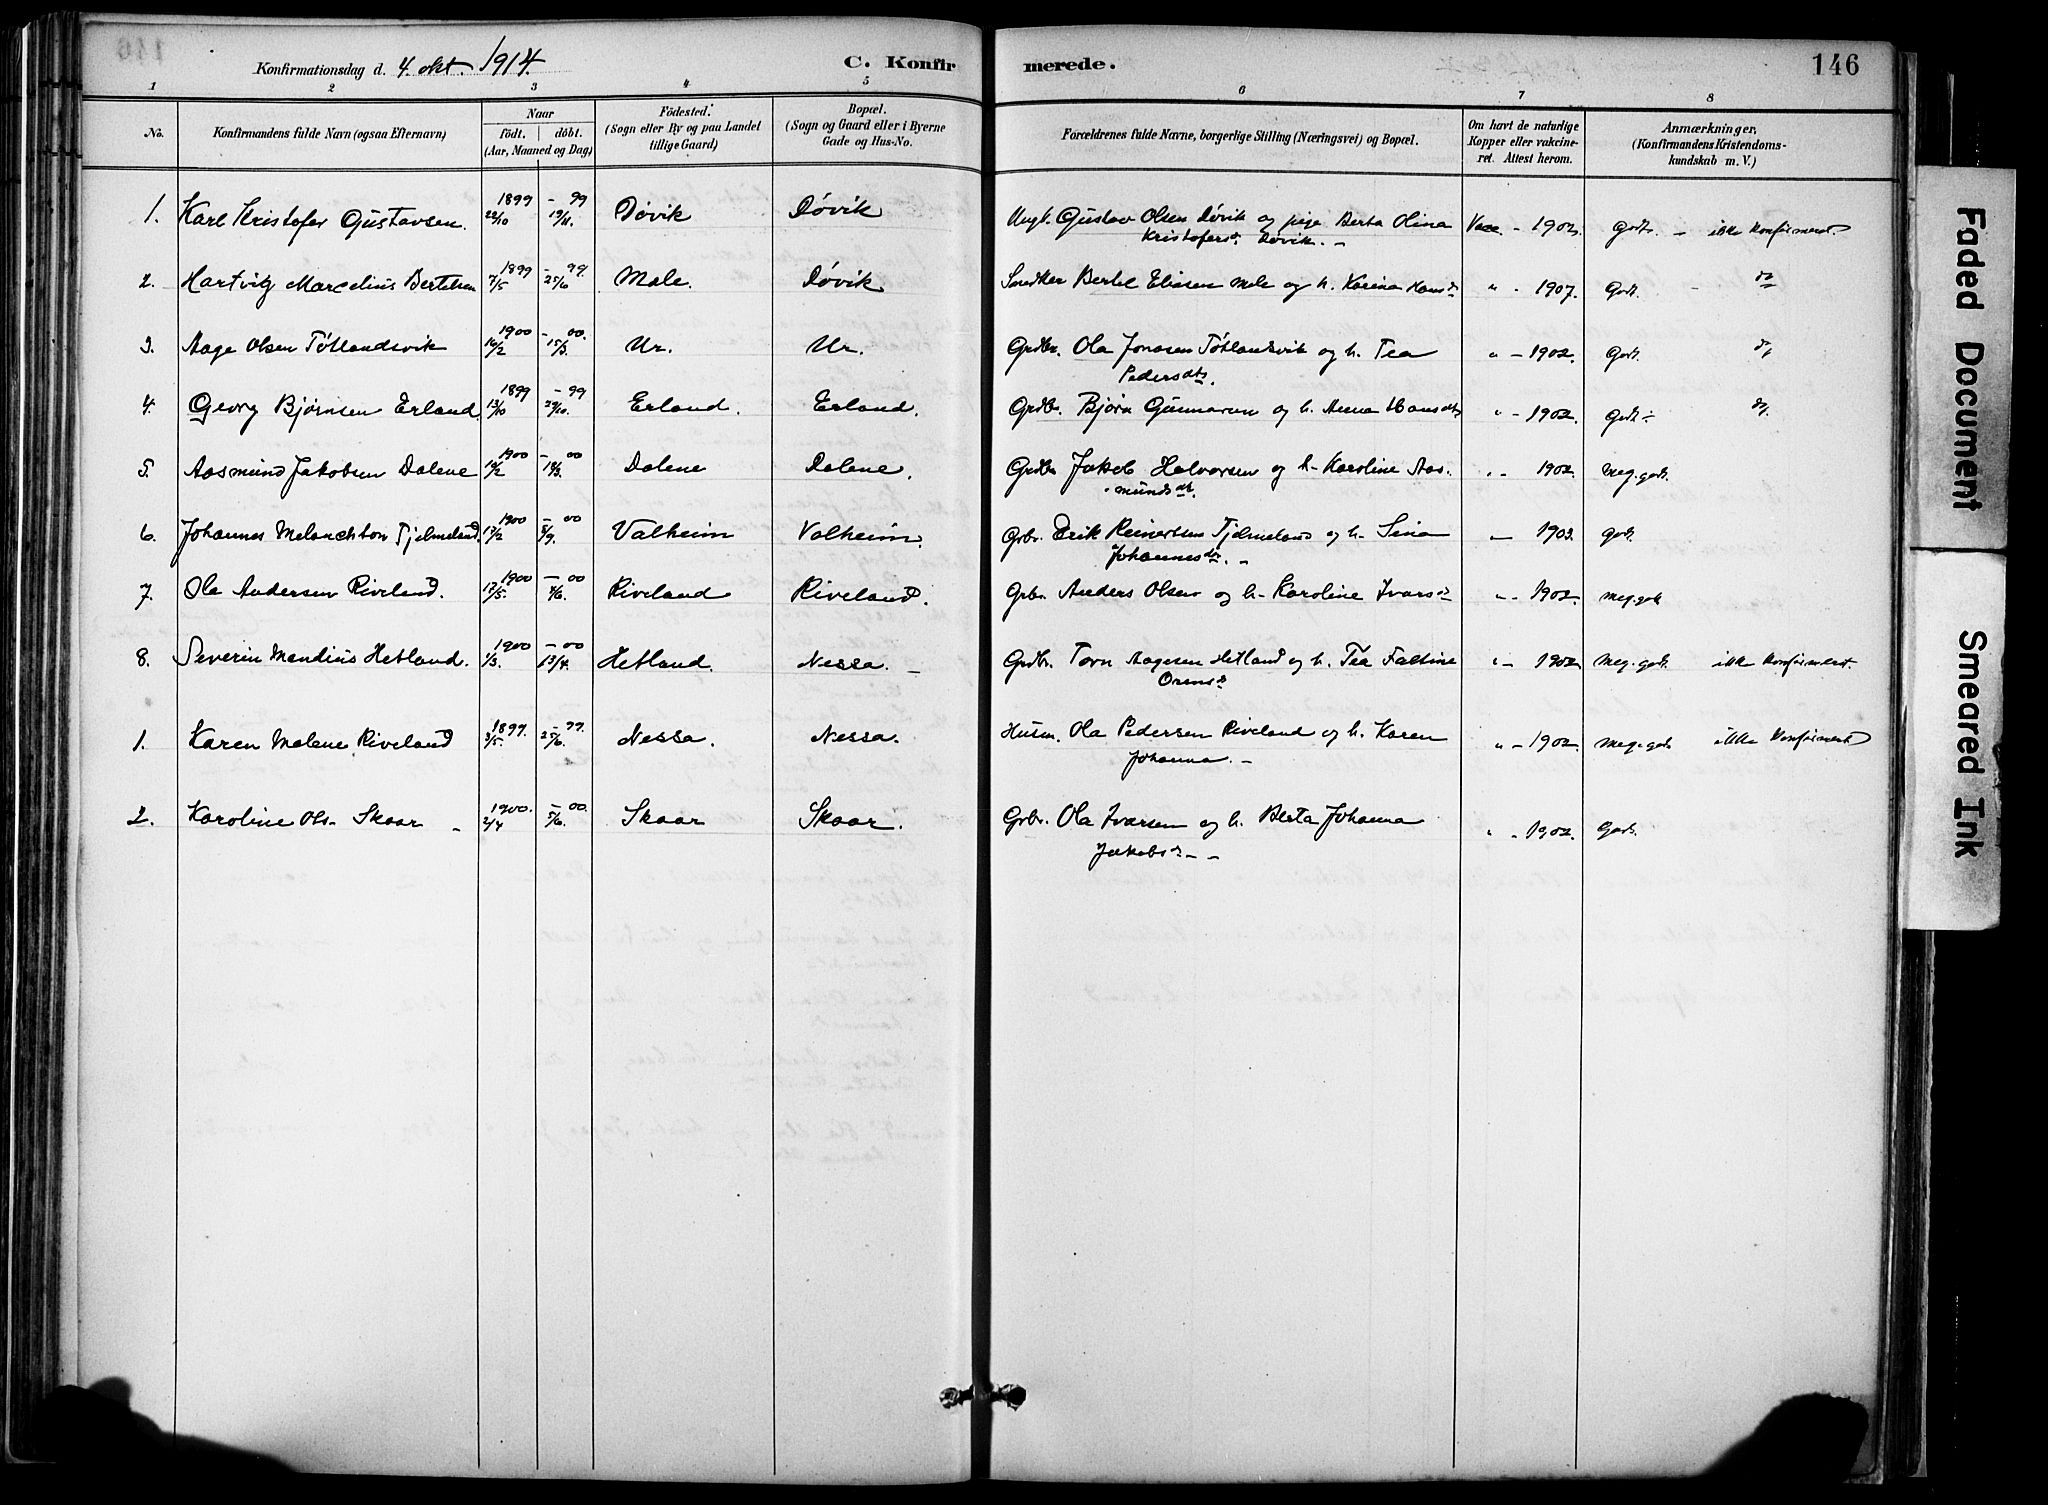 Konfirmationsdag d. 4. okt. 1914.
C. Konfirmerede.
146
1 2 3 4 5 6 7 8
No.
Konfirmandens fulde Navn (ogsaa Efternavn)
Naar
födt. döbt.
(Aar, Maaned og Dag)
Födested.
(Sogn eller By og paa Landet
tillige Gaard)
Bopæl.
(Sogn og Gaard eller i Byerne
Gade og Hus-No.
Forældrenes fulde Navne, borgerlige Stilling (Næringsvei) og Bopæl.
Om havt de naturlige
Kopper eller vakcine-
ret. Attest herom.
Anmærkninger,
(Konfirmandens Kristendoms-
kundskab m. V.)
1. Karl Kristofer Gustavsen. 1899 22/10 - 99 19/11. Døvik Døvik Ungk. Gustav Olsen Døvik og pige Berta Olina Vacc. - 1902. godt. - ikke konfirmeret.
Kristofersd. Døvik. -
2. Hartvig Marcelius Bertelsen 1899 7/5 - 99. 25/6 Mele. Døvik Snedker Bertel Eliasen Mele og h. Karina Hansd " - 1907. Godt. - do
3. Aage Olsen Tøtlandsvik 1900 16/2 - 00. 15/3. Ur. Ur. Grdbr. Ola Jonasen Tøtlandsvik og h. Tea " - 1902. Godt. do
Pedersdtr.
4. Georg Bjørnsen Erland. 1899 13/10 - 99 29/10. Erland. Erland. Grdbr. Bjørn Gunnarsen og h. Anna Hansdtr " - 1902. Godt - do.
5. Aasmund Jakobsen Dalene 1900 - 00 Dalene Dalene. Grdbr Jakob Halvorsen og h. Karoline Aas- " - 1902. Meg. godt.
mundsdt.
6. Johannes Melanchton Tjelmeland. 1900 17/2 - 00 5/9. Valheim Valheim. Grbr. Erik Reinertsen Tjelmeland og h. Sina " 1903. godt.
Johannesdtr. -
7. Ola Andersen Riveland. 1900 17/5. - 00 4/6. Riveland Riveland. Grbr. Anders Olsen og h. Karoline Ivarsd " - 1902. meg. godt
8. Severin Mandius Hetland. 1900 1/3. - 00 13/4. Hetland. Nessa. - Grdbr. Torn Aagesen Hetland og h. Tea Faltine " - 1902. Meg. godt. ikke konfirmeret.
Orensd
1. Karen Malene Riveland 1899. 3/5. - 99. 25/6. Nessa. Nessa. Husm. Ola Pedersen Riveland og h. Karen " - 1902. Meg. godt ikke konfirmeret
Johanna. -
2. Karoline Ols- Skaar - 1900. 2/4 - 00. 5/6. Skaar Skaar. Grbr. Ola Ivarsen og h. Berta Johanna " - 1902. Godt.
Jakobsd. - -
Faded Document
Smeared Ink